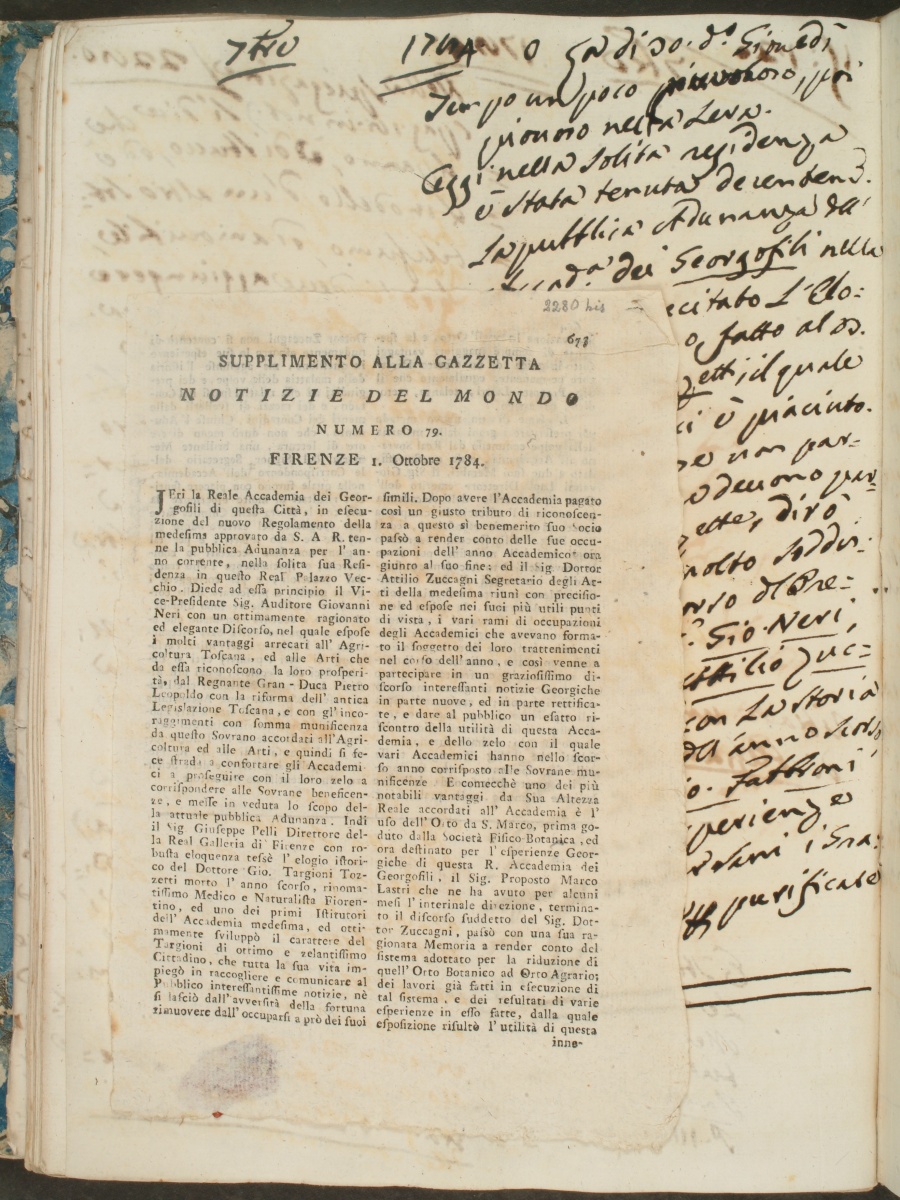 7bre 1784 A dì 30. do. Giovedì
Tempo un poco piovoso, poi
piovoso nella sera.
Oggi nella solita residenza
è stata tenuta decentem.
La pubblica Adunanza dell'
Accad.a dei Georgofili nella
recitato L'Elo=
o, fatto al D.
zetti, il quale
ci è piaciuto.
se non par=
devono par=
ette, dirò
molto soddis=
orso del Pre=
Gio. Neri,
Attilio Zuc=
con La storia
dell'anno scorso
o. Fabbroni
perienze
purificate
2280 bis
673
SUPPLIMENTO ALLA GAZZETTA
NOTIZIE DEL MONDO
NUMERO 79.
FIRENZE 1. Ottobre 1784.
JEri la Reale Accademia dei Geor-
gofili di questa Città, in esecu-
zione del nuovo Regolamento della
medesima approvato da S. A R. ten-
ne la pubblica Adunanza per l' an-
no corrente, nella solita sua Resi-
denza in questo Real Palazzo Vec-
chio. Diede ad essa principio il Vi-
ce-Presidente Sig. Auditore Giovanni
Neri con un ottimamente ragionato
ed elegante Discorso, nel quale espose
i molti vantaggi arrecati all' Agri-
coltura Toscana, ed alle Arti che
da essa riconoscono la loro prosperi-
tà, dal Regnante Gran-Duca Pietro
Leopoldo con la riforma dell' antica
Legislazione Toscana, e con gl'inco-
raggimenti con somma munificenza
da questo Sovrano accordati all'Agri-
coltura ed alle Arti, e quindi si fe-
ce strada a confortare gli Accademi-
ci a proseguire con il loro zelo a
corrispondere alle Sovrane beneficen-
ze, e messe in veduta lo scopo del-
la attuale pubblica Adunanza. Indi
il Sig Giuseppe Pelli Direttore del-
la Real Galleria di Firenze con ro-
busta eloquenza tessè l' elogio istori-
co del Dottore Gio. Targioni Toz-
zetti morto l' anno scorso, rinoma-
tissimo Medico e Naturalista Fioren-
tino, ed uno dei primi Istitutori
dell' Accademia medesima, ed otti-
mamente sviluppò il carattere del
Targioni di ottimo e zelantissimo
Cittadino, che tutta la sua vita im-
piegò in raccogliere e comunicare al
Pubblico interessantissime notizie, nè
si lasciò dall'avversità della fortuna
rimuovere dall'occuparsi a prò dei suoi
simili. Dopo avere l'Accademia pagato
così un giusto tributo di riconoscen-
za a questo sì benemerito suo Socio
passò a render conto delle sue occu-
pazioni dell' anno Accademico ora
giunto al suo fine: ed il Sig Dottor
Attilio Zuccagni Segretario degli At-
ti della medesima riunì con precisio-
ne ed espose nei suoi più utili punti
di vista, i vari rami di occupazioni
degli Accademici che avevano forma-
to il soggetto dei loro trattenimenti
nel corso dell'anno, e così venne a
partecipare in un graziosissimo di-
scorso interessanti notizie Georgiche
in parte nuove, ed in parte rettifica-
te, e dare al pubblico un esatto ri-
scontro della utilità di questa Acca-
demia, e dello zelo con il quale
vari Accademici hanno nello scor-
so anno corrisposto alle Sovrane mu-
nificenze E comecchè uno dei più
notabili vantaggi da Sua Altezza
Reale accordati all' Accademia è l'
uso dell'Orto da S. Marco, prima go-
duto dalla Società Fisico-Botanica, ed
ora destinato per l'esperienze Geor-
giche di questa R. Accademia dei
Georgofili, il Sig. Proposto Marco
Lastri che ne ha avuto per alcuni
mesi l'interinale direzione, termina-
to il discorso suddetto del Sig. Dot-
tor Zuccagni, passò con una sua ra-
gionata Memoria a render conto del
sistema adottato per la riduzione di
quell'Orto Botanico ad Orto Agrario;
dei lavori già fatti in esecuzione di
tal sistema, e dei resultati di varie
esperienze in esso fatte, dalla quale
esposizione risultò l'utilità di questa
inno-